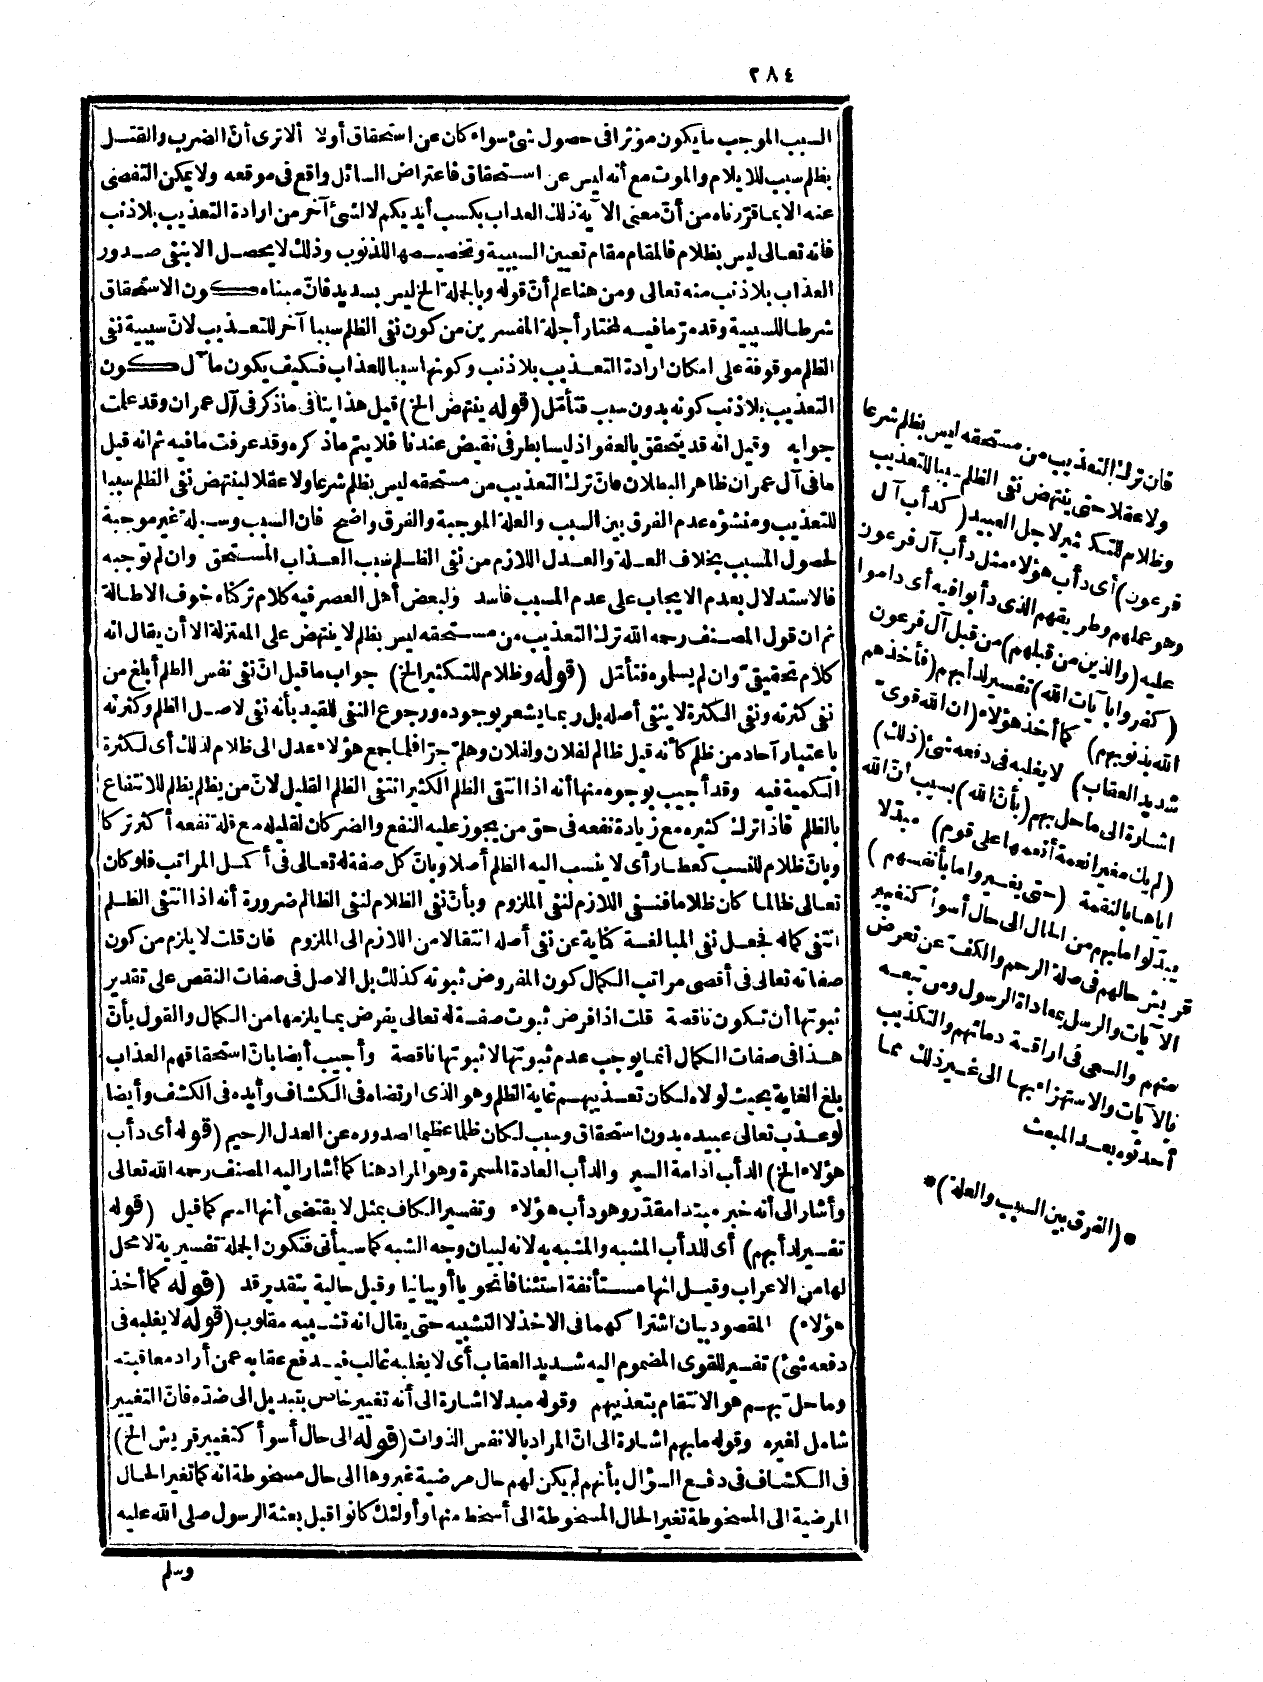 ٢٨٤
السبب الموجب ما يكون مؤثرا فى حصول شئ سواء كان عن استحقاق أولا ألا ترى أنّ الضرب والقتل
بظلم سبب للايلام والموت مع أنه ليس عن استحقاق فاعتراض السائل واقع فى موقعه ولا يمكن التفصى
عنه الا بما قرّرناه من أنّ معنى الآية ذلك العذاب بكسب أيديكم لا لشئ آخر من ارادة التعذيب بلا ذنب
فانه تعالى ليس بظلام فالمقام مقام تعيين السببية وتخصيصها للذنوب وذلك لا يحصل الا بنفى صدور
العذاب بلا ذنب منه تعالى ومن هنا علم أنّ قوله وبالجملة الخ ليس بسديد فانّ مبناه كون الاستحقاق
شرطا للسببية وقد مرّ ما فيه لمختار أجلة المفسرين من كون نفى الظلم سببا آخر للتعذيب لانّ سببية نفى
الظلم موقوفة على امكان ارادة التعذيب بلا ذنب وكونها سببا للعذاب فكيف يكون مآل كون
التعذيب بلا ذنب كونه بدون سبب فتأمّل (قوله ينتهض الخ) قيل هذا ينافى ما ذكر فى آل عمران وقد علمت
جوابه وقيل انه قد يتحقق بالعفو اذ ليسا بطرفى نقيض عندنا فلا يتم ما ذكره وقد عرفت ما فيه ثم انه قيل
ما فى آل عمران ظاهر البطلان فانّ ترك التعذيب من مستحقه ليس بظلم شرعا ولا عقلا لينتهض نفى الظلم سببا
للتعذيب ومنشؤه عدم الفرق بين السبب والعلة الموجبة والفرق واضح فان السبب وسيلة غير موجبة
لحصول المسبب بخلاف العلة والعدل اللازم من نفى الظلم سبب العذاب المستحق وان لم توجبه
فالاستدلال بعدم الايجاب على عدم المسبب فاسد ولبعض أهل العصر فيه كلام تركناه خوف الاطالة
ثم ان قول المصنف رحمه الله ترك التعذيب من مستحقه ليس بظلم لا ينتهض على المعتزلة الا أن يقال انه
كلام تحقيقىّ وان لم يسلموه فتأمّل (قوله وظلام للتكثير الخ) جواب ما قيل انّ نفى نفس الظلم أبلغ من
نفى كثرته ونفى الكثرة لا ينفى أصله بل ربما يشعر بوجوده ورجوع النفى للقيد بأنه نفى لاصل الظلم وكثرته
باعتبار آحاد من ظلم كأنه قيل ظالم لفلان ولفلان وهلمّ جرّا فلما جمع هؤلاء عدل الى ظلام لذلك أى لكثرة
الكمية فيه وقد أجيب بوجوه منها أنه اذا انتفى الظلم الكثير انتفى الظلم القليل لانّ من يظلم يظلم للانتفاع
بالظلم فاذا ترك كثيره مع زيادة نفعه فى حق من يجوز عليه النفع والضر كان لقليله مع قلة نفعه أكثر تركا
وبانّ ظلام للنسب كعطار أى لا ينسب اليه الظلم أصلا وبانّ كل صفة له تعالى فى أكمل المراتب فلو كان
تعالى ظالما كان ظلاما فنفى اللازم لنفى الملزوم وبأنّ نفى الظلام لنفى الظالم ضرورة أنه اذا انتفى الظلم
انتفى كماله فجعل نفى المبالغة كناية عن نفى أصله انتقالا من اللازم الى الملزوم فان قلت لا يلزم من كون
صفاته تعالى فى أقصى مراتب الكمال كون المفروض ثبوته كذلك بل الاصل فى صفات النقص على تقدير
ثبوتها أن تكون ناقصة قلت اذا فرض ثبوت صفة له تعالى يفرض بما يلزمها من الكمال والقول بأنّ
هذا فى صفات الكمال انما يوجب عدم ثبوتها لا ثبوتها ناقصة وأجيب أيضا بانّ استحقاقهم العذاب
بلغ الغاية بحيث لولاه لكان تعذيبهم غاية الظلم وهو الذى ارتضاه فى الكشاف وأيده فى الكشف وأيضا
لو عذب تعالى عبيده بدون استحقاق وسبب لكان ظلما عظيما لصدوره عن العدل الرحيم (قوله أى دأب
هؤلاء الخ) الدأب ادامة السير والدأب العادة المستمرة وهو المراد هنا كما أشار اليه المصنف رحمه الله تعالى
وأشار الى أنه خبر مبتدا مقدّر وهو دأب هؤلاء وتفسير الكاف بمثل لا يقتضى أنها اسم كما قيل (قوله
تفسير لدأبهم) أى للدأب المشبه والمشبه به لانه لبيان وجه الشبه كما سيأتى فتكون الجملة تفسيرية لا محل
لها من الاعراب وقيل انها مستأنفة استئنافا نحويا أو بيانيا وقيل حالية بتقدير قد (قوله كما أخذ
هؤلاء) المقصود بيان اشتراكهما فى الاخذ لا التشبيه حتى يقال انه تشبيه مقلوب (قوله لا يغلبه فى
دفعه شئ) تفسير للقوى المضموم اليه شديد العقاب أى لا يغلبه غالب فيدفع عقابه عمن أراد معاقبته
وما حلّ بهم هو الانتقام بتعذيبهم وقوله مبدلا اشارة الى أنه تغيير خاص بتبديل الى ضدّه فانّ التغيير
شامل لغيره وقوله ما بهم اشارة الى انّ المراد بالانفس الذوات (قوله الى حال أسوأ كتغيير قريش الخ)
فى الكشاف فى دفع السؤال بأنهم لم يكن لهم حال مرضية غيروها الى حال مسخوطة انه كما تغير الحال
المرضية الى المسخوطة تغير الحال المسخوطة الى أسخط منها وأولئك كانوا قبل بعثة الرسول صلى الله عليه
وسلم
فان ترك التعذيب من مستحقه ليس بظلم شرعا
ولا عقلا حتى ينتهض نفى الظلم سببا للتعذيب
وظلام للتكثير لاجل العبيد (كدأب آل
فرعون) أى دأب هؤلاء مثل دأب آل فرعون
وهو عملهم وطريقهم الذى دأبوا فيه أى داموا
عليه (والذين من قبلهم) من قبل آل فرعون
(كفروا بآيات الله) تفسير لدأبهم (فأخذهم
الله بذنوبهم) كما أخذ هؤلاء (ان الله قوىّ
شديد العقاب) لا يغلبه فى دفعه شئ (ذلك)
اشارة الى ما حل بهم (بأنّ الله) بسبب انّ الله
(لم يك مغيرا نعمة أنعمها على قوم) مبدلا
اياها بالنقمة (حتى يغيروا ما بأنفسهم)
يبدّلوا ما بهم من الحال الى حال أسوأ كتغيير
قريش حالهم فى صلة الرحم والكفّ عن تعرض
الآيات والرسل بمعاداة الرسول ومن تبعه
منهم والسعى فى اراقة دمائهم والتكذيب
بالآيات والاستهزاء بها الى غير ذلك مما
أحدثوه بعد المبعث
*(الفرق بين السبب والعلة)*